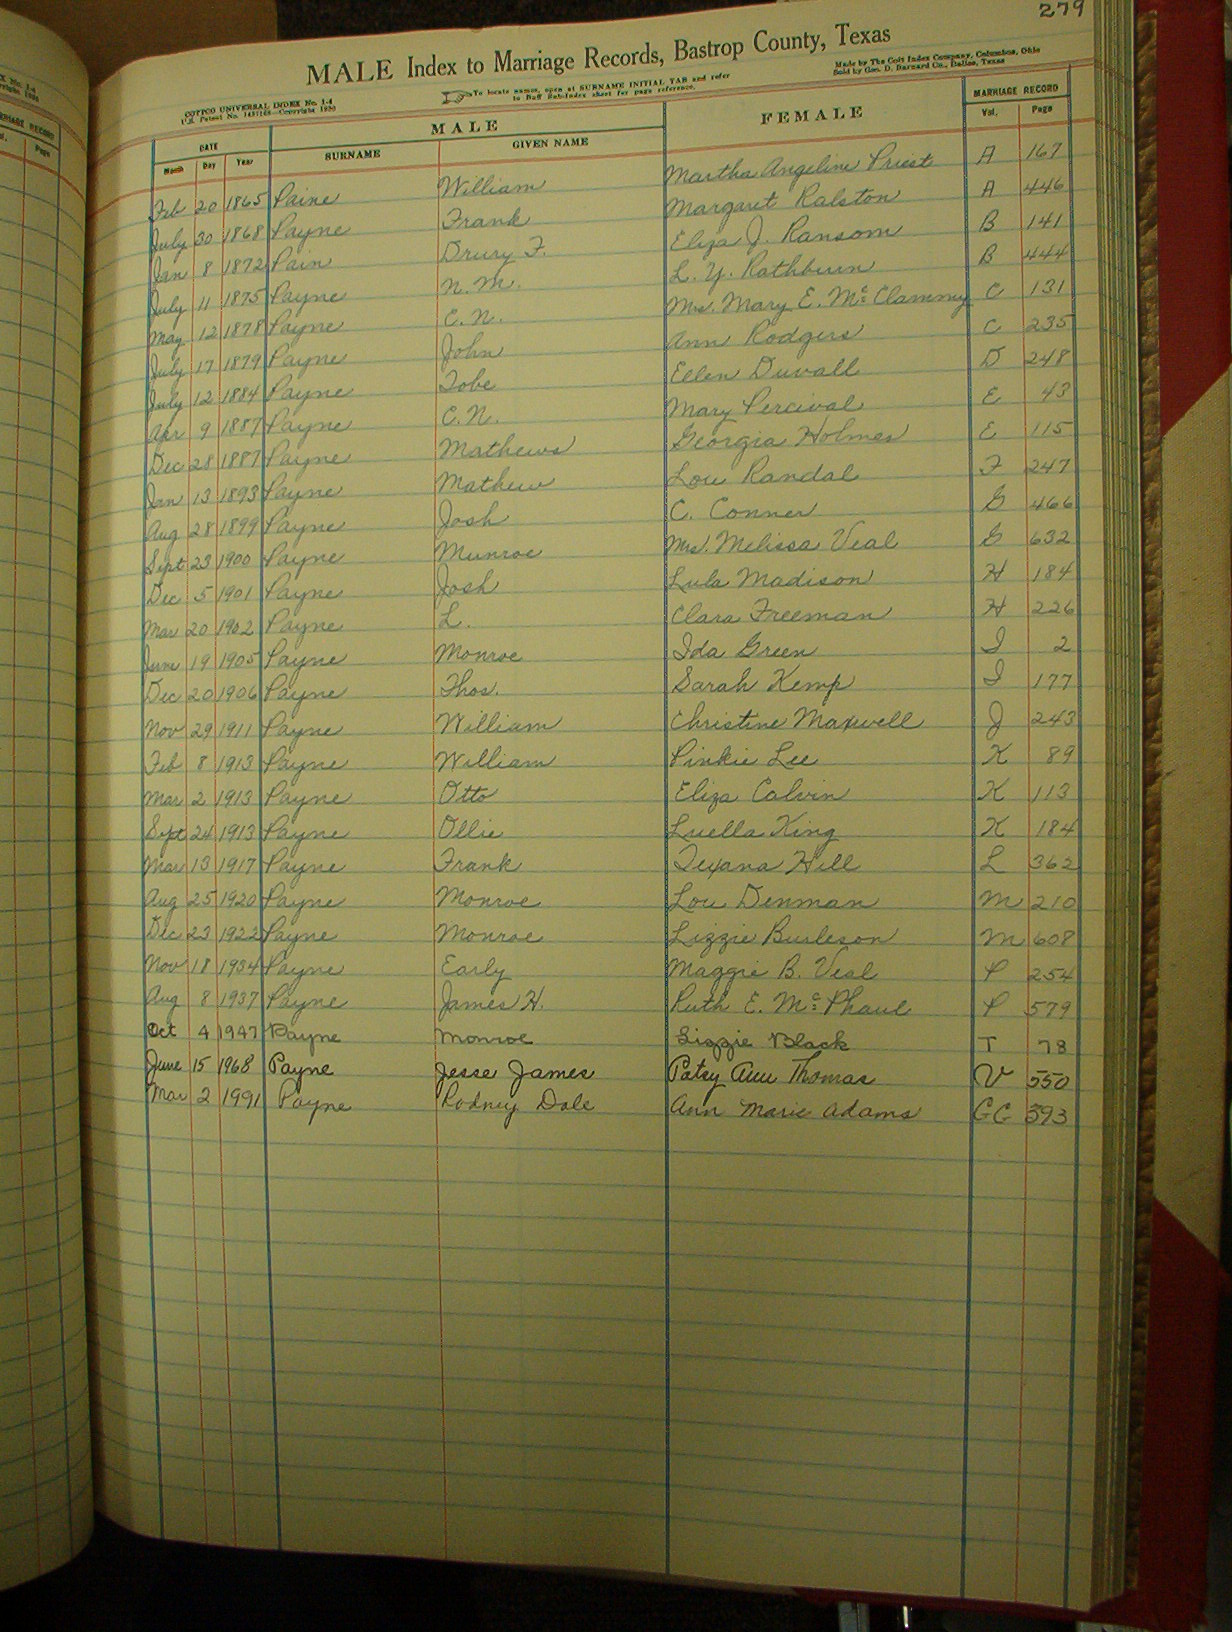 279
MALE Index to Marriage Records, Bastrop County, Texas
COTTCO UNIVERSAL INDEX No. 1-4
To locate names, open at SURNAME INITIAL TAB and refer
to Buff Sub-Index sheet for page reference.
Made by The Cott Index Company, Columbus, Ohio
Sold by Geo. D. Barnard Co., Dallas, Texas
DATE MALE FEMALE MARRIAGE RECORD
Month Day Year SURNAME GIVEN NAME Vol. Page
Feb 20 1865 Paine William Martha Angeline Priest A 167
July 30 1868 Payne Frank Margaret Ralston A 446
Jan 8 1872 Pain Drury F. Eliza J. Ransom B 141
July 11 1875 Payne N. M. L. Y. Rathburn B 444
May 12 1878 Payne C. N. Mrs. Mary E. McClammy C 131
July 17 1879 Payne John Ann Rodgers C 235
July 12 1884 Payne Tobe Ellen Duvall D 248
Apr 9 1887 Payne C. N. Mary Percival E 43
Dec 28 1887 Payne Mathews Georgia Holmes E 115
Jan 13 1893 Payne Mathew Lou Randal F 247
Aug 28 1899 Payne Josh C. Conner G 466
Sept 23 1900 Payne Munroe Mrs. Melissa Veal G 632
Dec 5 1901 Payne Josh Lula Madison H 184
Mar 20 1902 Payne L. Clara Freeman H 226
June 19 1905 Payne Monroe Ida Green I 2
Dec 20 1906 Payne Thos. Sarah Kemp I 177
Nov 29 1911 Payne William Christine Maxwell J 243
Feb 8 1913 Payne William Pinkie Lee K 89
Mar 2 1913 Payne Otto Eliza Calvin K 113
Sept 24 1913 Payne Ollie Luella King K 184
Mar 13 1917 Payne Frank Texana Hill L 362
Aug 25 1920 Payne Monroe Lou Denman M 210
Dec 23 1922 Payne Monroe Lizzie Burleson M 608
Nov 18 1934 Payne Early Maggie B. Veal P 254
Aug 8 1937 Payne James H. Ruth E. McPhaul P 579
Oct 4 1947 Payne Monroe Lizzie Black T 78
June 15 1968 Payne Jesse James Patsy Ann Thomas V 550
Mar 2 1991 Payne Rodney Dale Ann Marie Adams GG 593